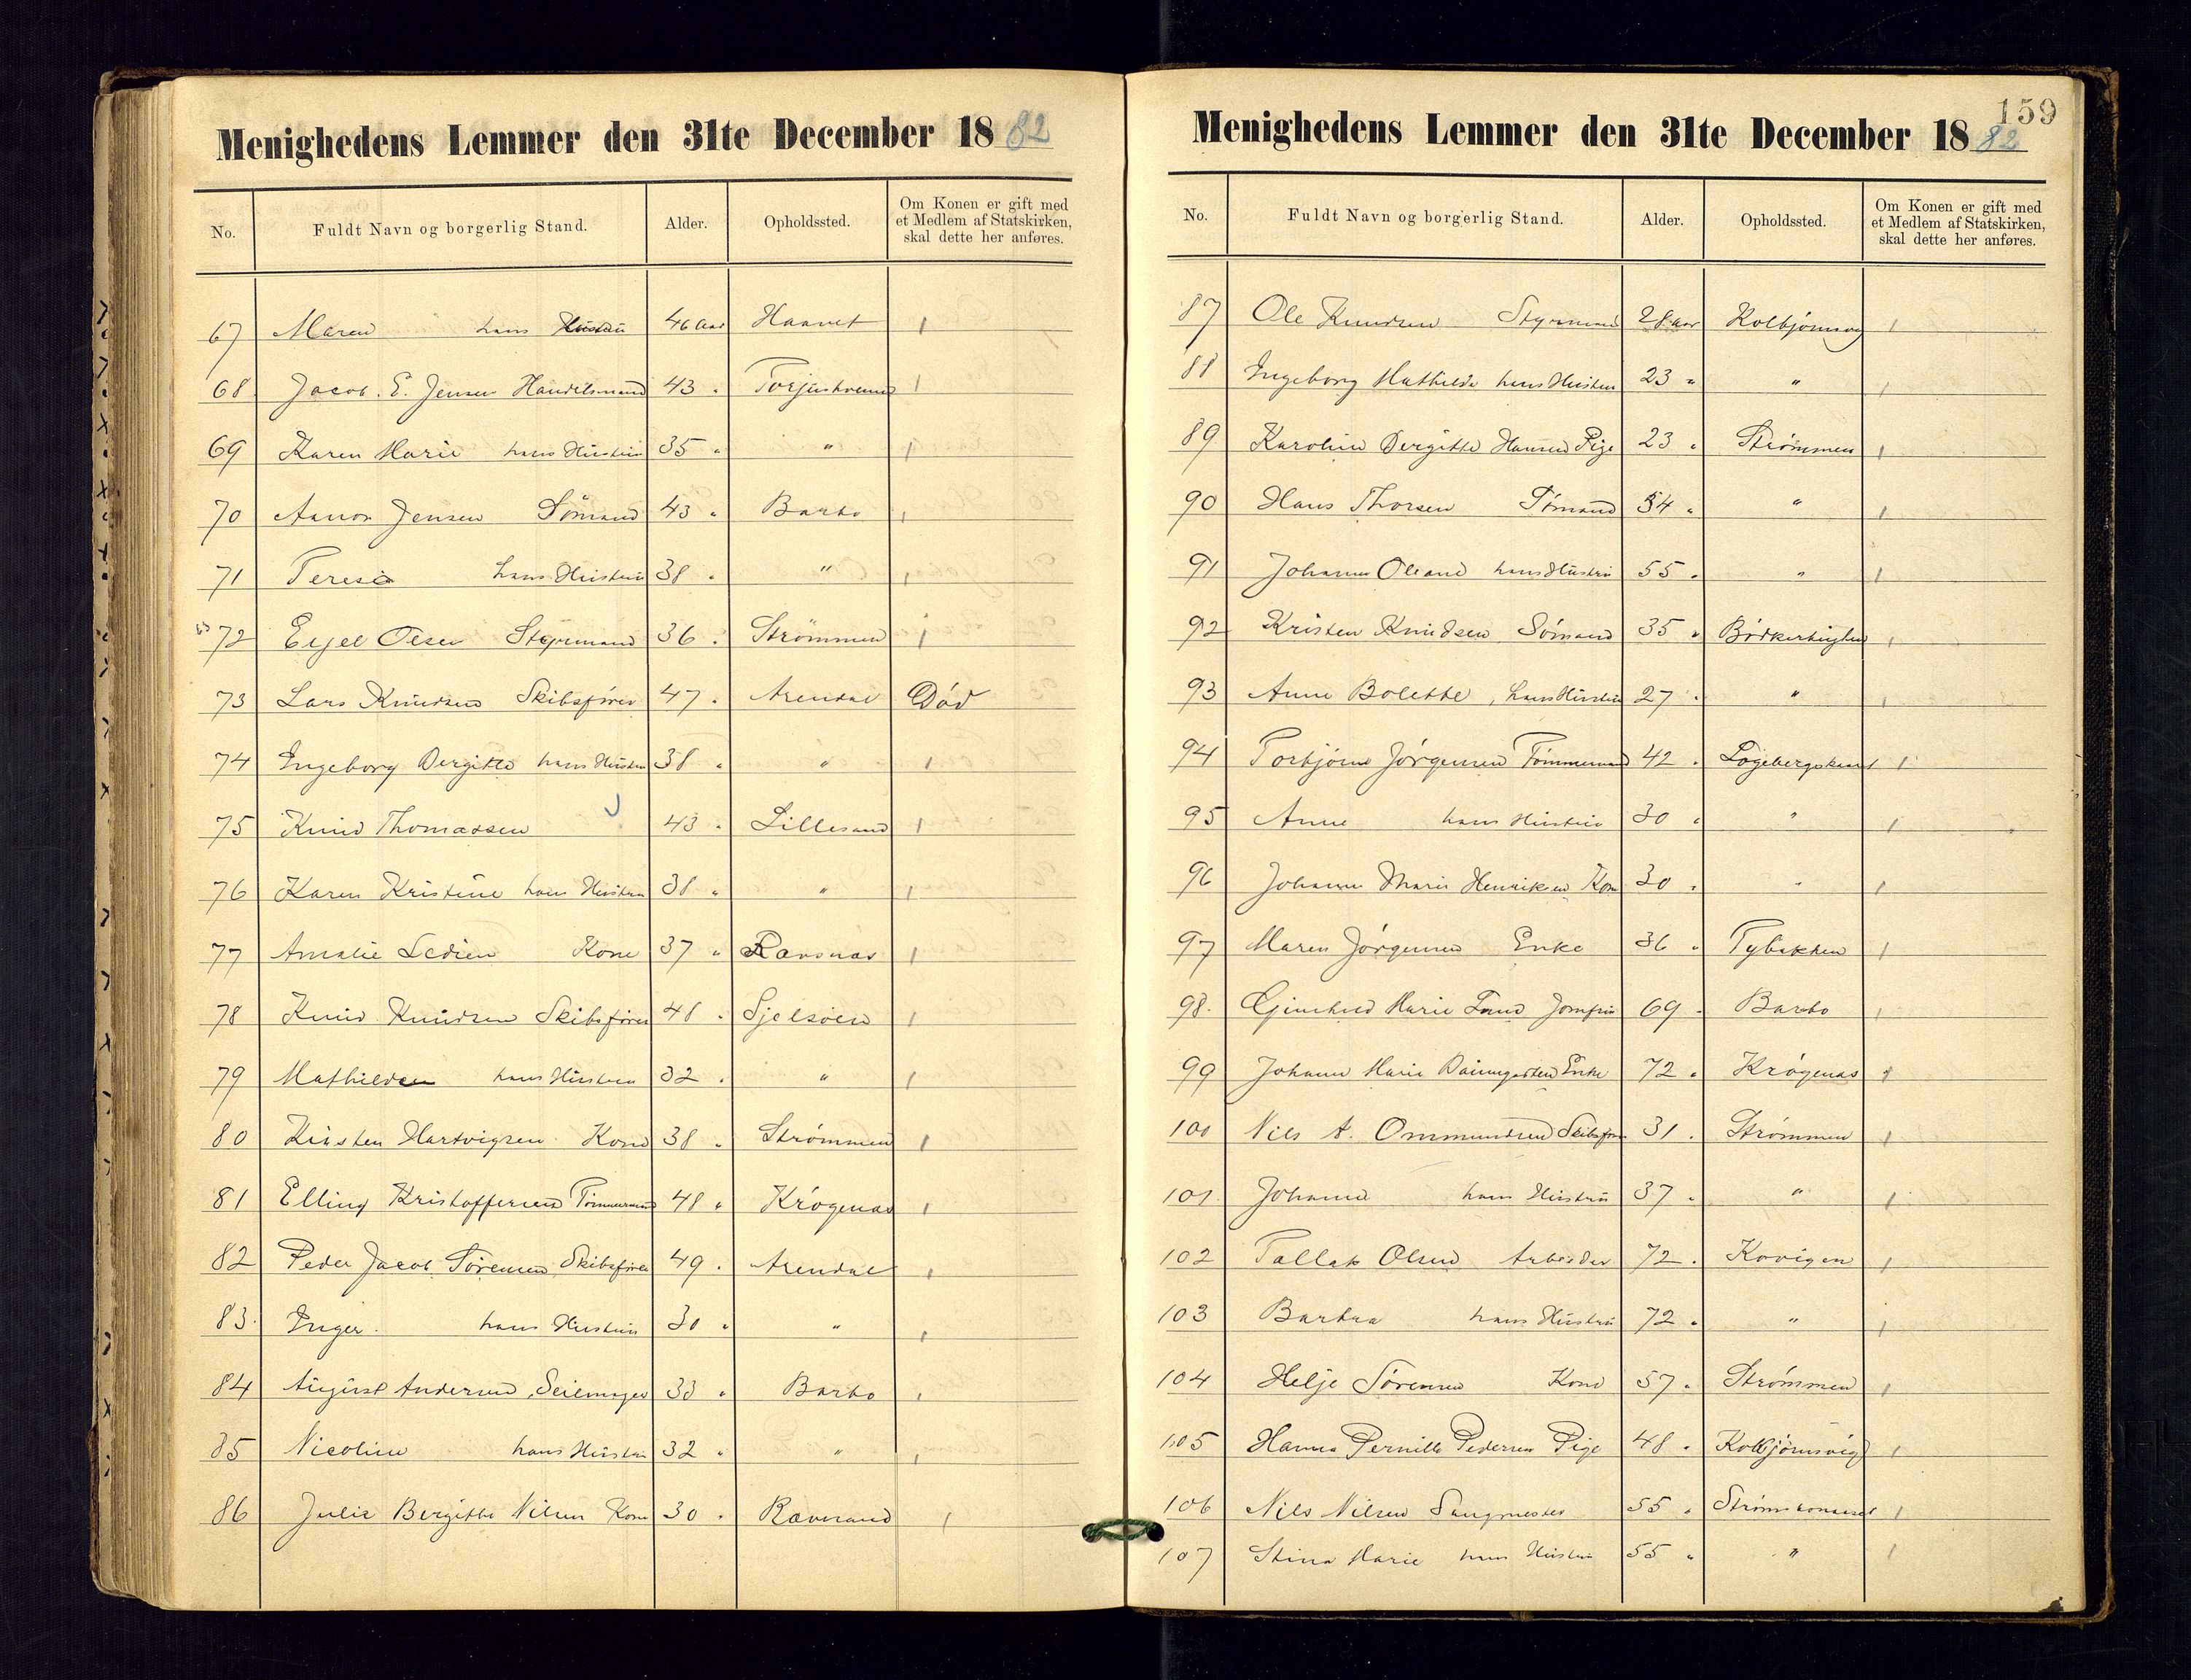 Menighedens Lemmer den 31te December 1882
No. Fuldt Navn og borgerlig Stand. Alder. Opholdssted. Om Konen er gift med et Medlem af Statskirken, skal dette her anføres.
67 Maren hans Hustru 46 Aar Haavet /
68 Jacob. E. Jensen Handelsmand 43 " /
69 Karen Marie hans Hustru 35 " " /
70 Aanon Jensen Sömand 43 " Barbo /
71 Teresia hans Hustru 38 " " /
72 Ejel Olsen Styrmand 36 " Strömmen /
73 Lars Knudsen Skibsfører 47 " Arendal Död
74 Ingeborg Bergitte hans Hustru 38 " " /
75 Knud Thomassen 43 " Lillesand /
76 Karen Kristine hans Hustru 38 " " /
77 Amalie Ledien Kone 37 " Rævsnæs /
78 Knud Knudsen Skibsfører 48 " Gjelsöen /
79 Mathilde hans Hustru 32 " " /
80 Kirsten Hartvigsen Kone 38 " Strömmen /
81 Elling Kristoffersen Tömmermand 48 " Krögenæs /
82 Peder Jacob Sörensen Skibsfører 49 " Arendal /
83. Inger. hans Hustru 30 " " /
84 August Andersen, Seilmager 33 " Barbo /
85 Nicoline hans Hustru 32 " " /
86 Julie Bergitte Nilsen Kone 30 " Rævesand /
159
Menighedens Lemmer den 31te December 1882
No. Fuldt Navn og borgerlig Stand. Alder. Opholdssted. Om Konen er gift med et Medlem af Statskirken, skal dette her anføres.
87 Ole Knudsen Styrmand 28 aar Kolbjörnsvig /
88 Ingeborg Mathilde hans Hustru 23 " " /
89 Karoline Bergitte Hansen Pige 23 " Strömmen /
90 Hans Thorsen Sömand 54 " " /
91 Johanne Oleane hans Hustru 55 " " /
92 Kristen Knudsen Sömand 35 " /
93 Anne Bolette, hans Hustru 27 " " /
94 Torbjörn Jörgensen Tömmermand 42 " /
95 Anne hans Hustru 30 " " /
96 Johanne Marie Henriksen Kone 30 " " /
97 Maren Jörgensen Enke 36 " Tybakken /
98. Marie Lund Jomfru 69 " Barbo /
99 Johanne Marie Baumgarten Enke 72 " Krögenæs /
100 Nils A. Ommundsen Skibsfører 31 " Strömmen /
101. Johanne hans Hustru 37 " " /
102 Tallak Olsen Arbeider 72 " Kovigen /
103 Barbra hans Hustru 72 " " /
104 Helje Sörensen Kone 57 " Strömmen /
105 Hanna Pernille Pedersen Pige 48 " Kolbjörnsvig /
106 Nils Nilsen Sangmester 55 " /
107 Stina Marie hans Hustru 55 " " /